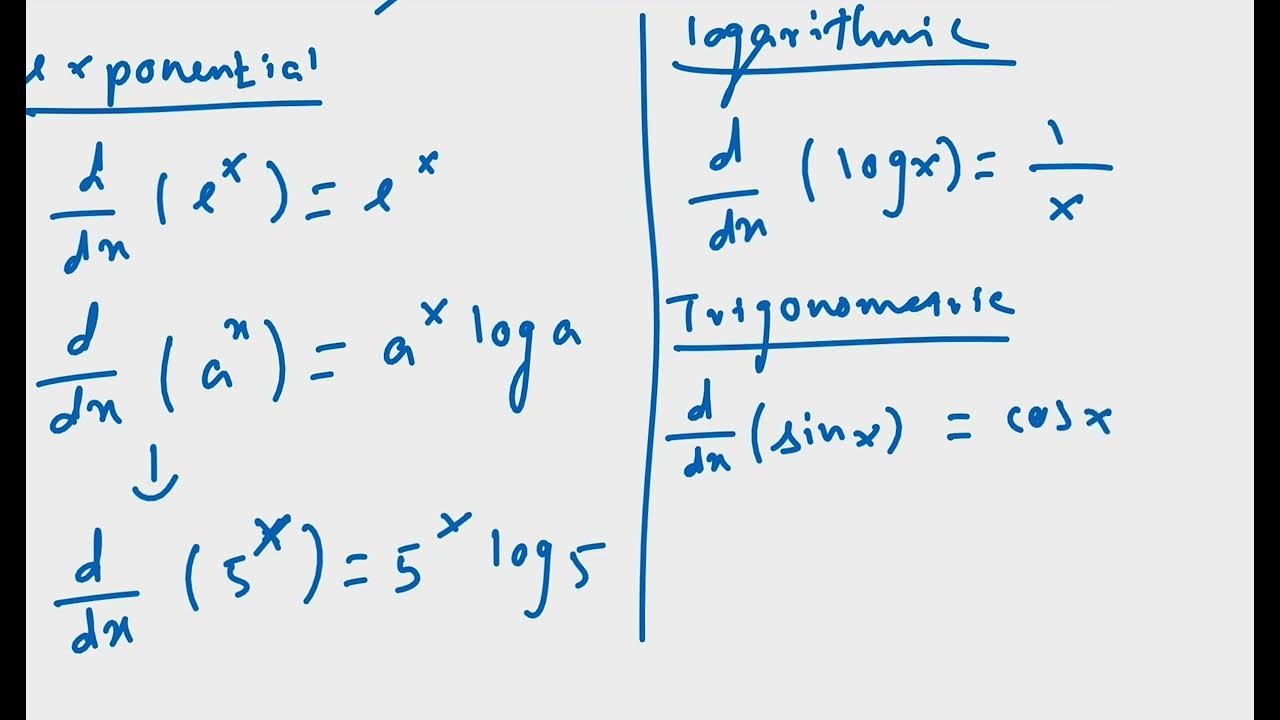 exponential
d/dx (e^x) = e^x
d/dx (a^x) = a^x log a
↓
d/dx (5^x) = 5^x log 5
logarithmic
d/dx (log x) = 1/x
Trigonometric
d/dx (sin x) = cos x